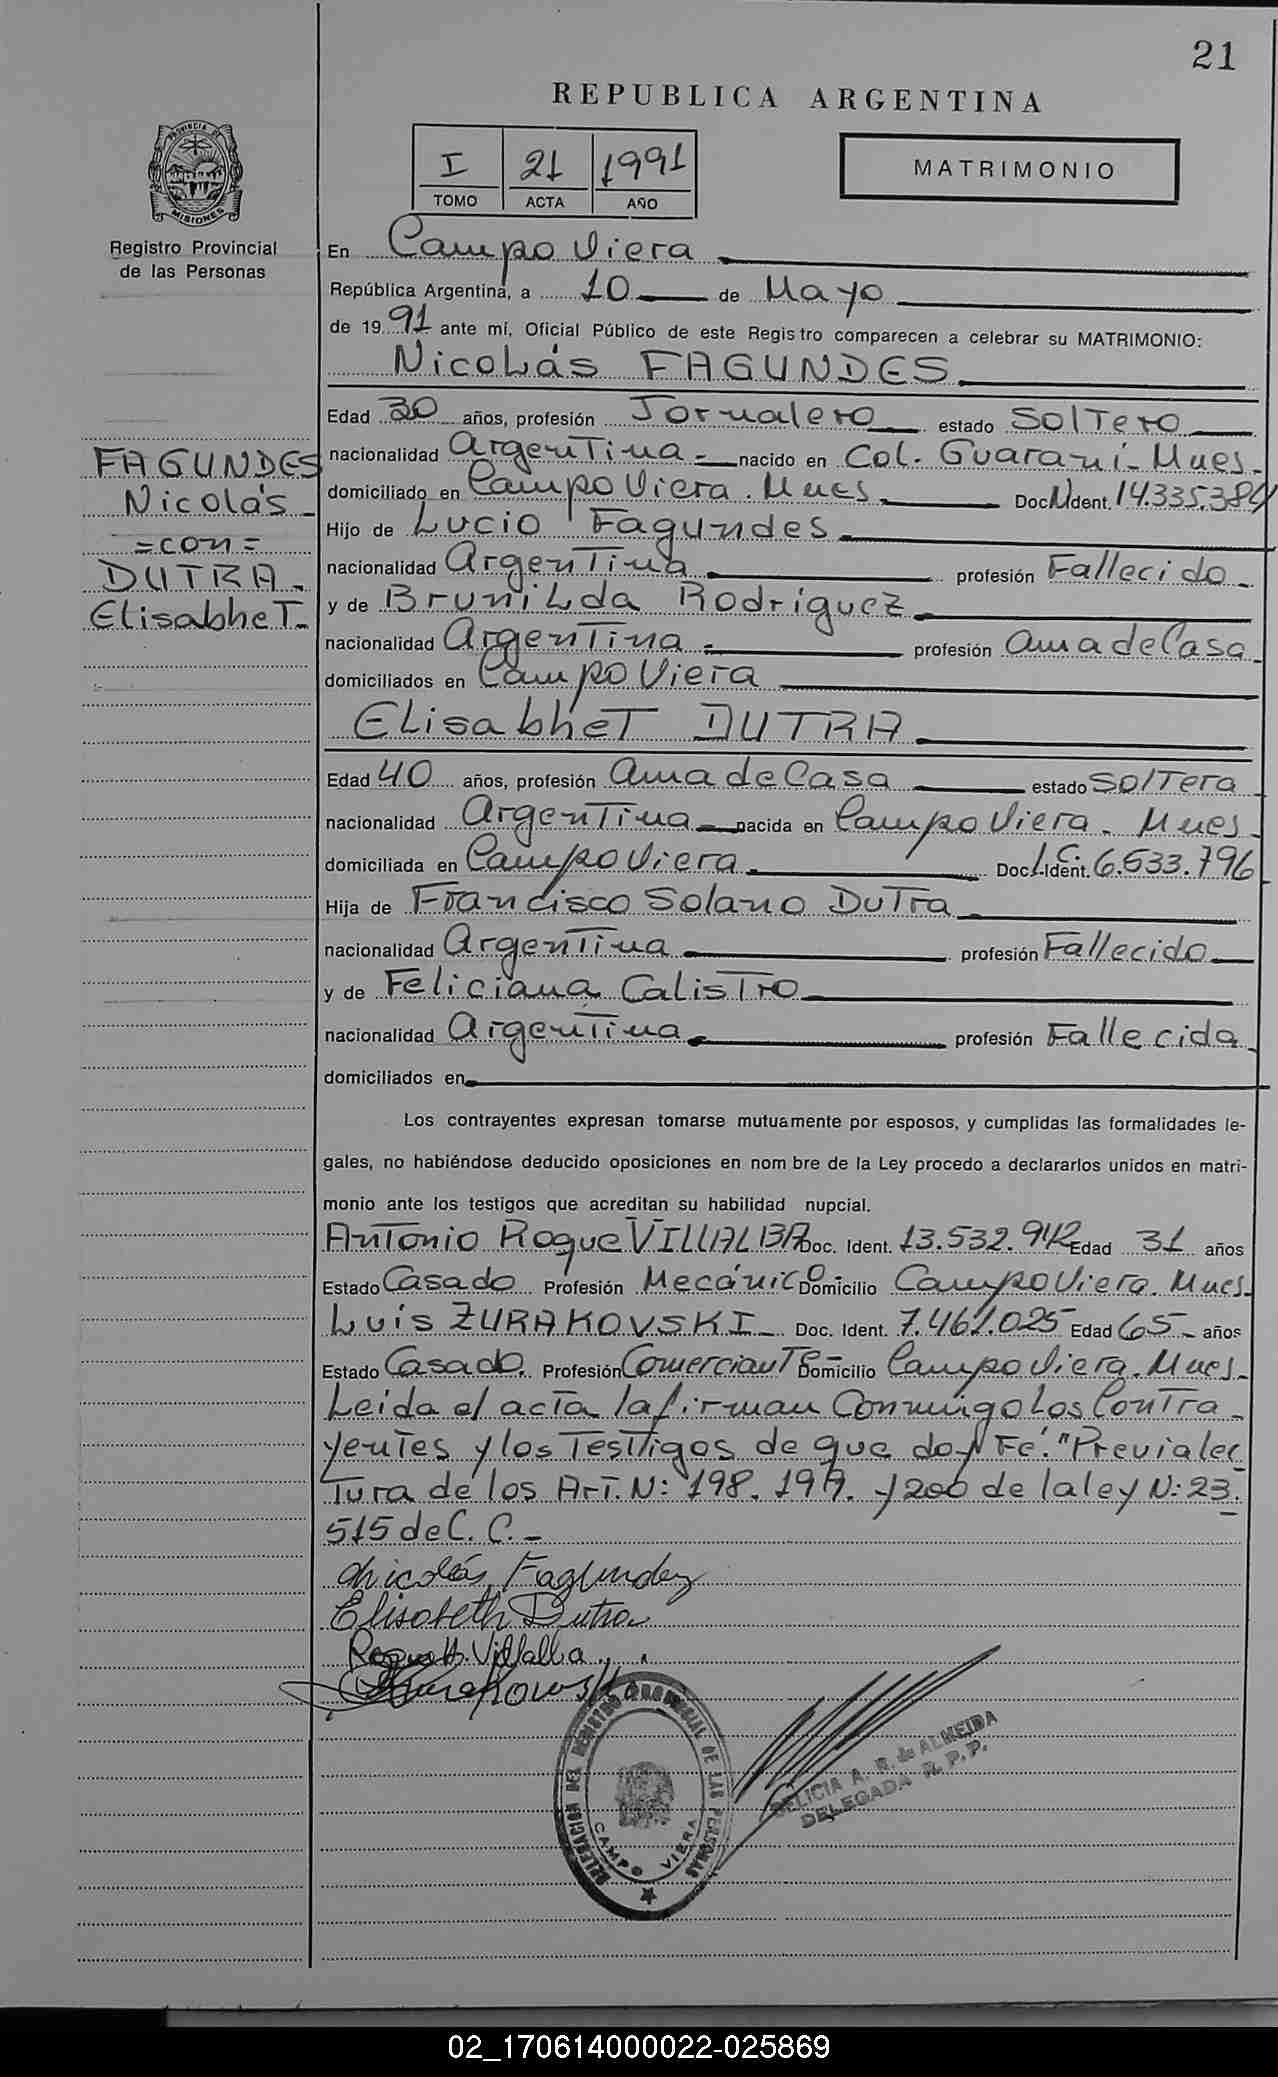 21
REPUBLICA ARGENTINA
I 21 1991
TOMO ACTA AÑO
MATRIMONIO
PROVINCIA DE
MISIONES
Registro Provincial
de las Personas
En Campo Viera
República Argentina, a 10 de Mayo
de 1991 ante mí, Oficial Público de este Registro comparecen a celebrar su MATRIMONIO:
Nicolás FAGUNDES
Edad 30 años, profesión Jornalero estado Soltero
nacionalidad Argentina - nacido en Col. Guaraní - Mnes.
domiciliado en Campo Viera. Mnes Doc. N Ident. 14.335.384
Hijo de Lucio Fagundes
nacionalidad Argentina profesión Fallecido
y de Brunilda Rodriguez
nacionalidad Argentina profesión Ama de Casa
domiciliados en Campo Viera
Elisabhet DUTRA
Edad 40 años, profesión Ama de Casa estado Soltera
nacionalidad Argentina nacida en Campo Viera. Mnes
domiciliada en Campo Viera Doc. L.C. Ident. 6.533.796
Hija de Francisco Solano Dutra
nacionalidad Argentina profesión Fallecido
y de Feliciana Calistro
nacionalidad Argentina profesión Fallecida
domiciliados en
FAGUNDES
Nicolás
=con=
DUTRA
Elisabhet
Los contrayentes expresan tomarse mutuamente por esposos, y cumplidas las formalidades le-
gales, no habiéndose deducido oposiciones en nombre de la Ley procedo a declararlos unidos en matri-
monio ante los testigos que acreditan su habilidad nupcial.
Antonio Roque VILLALBA Doc. Ident. 13.532.942 Edad 31 años
Estado Casado Profesión Mecánico Domicilio Campo Viera. Mnes.
Luis ZURAKOVSKI Doc. Ident. 7.461.025 Edad 65 años
Estado Casado. Profesión Comerciante Domicilio Campo Viera. Mnes.
Leida el acta la firman Conmigo los Contra-
yentes y los Testigos de que doy Fé. "Previa lec
tura de los Art. N: 198. 199. y 200 de la ley N: 23.
515 de C. C.
Nicolás Fagundez
Elisabeth Dutra
Roque A. Villalba
Zurakowski
DELEGACION DEL REGISTRO PROVINCIAL DE LAS PERSONAS
CAMPO VIERA
DELICIA A. R. de ALMEIDA
DELEGADA R. P. P.
02_170614000022-025869